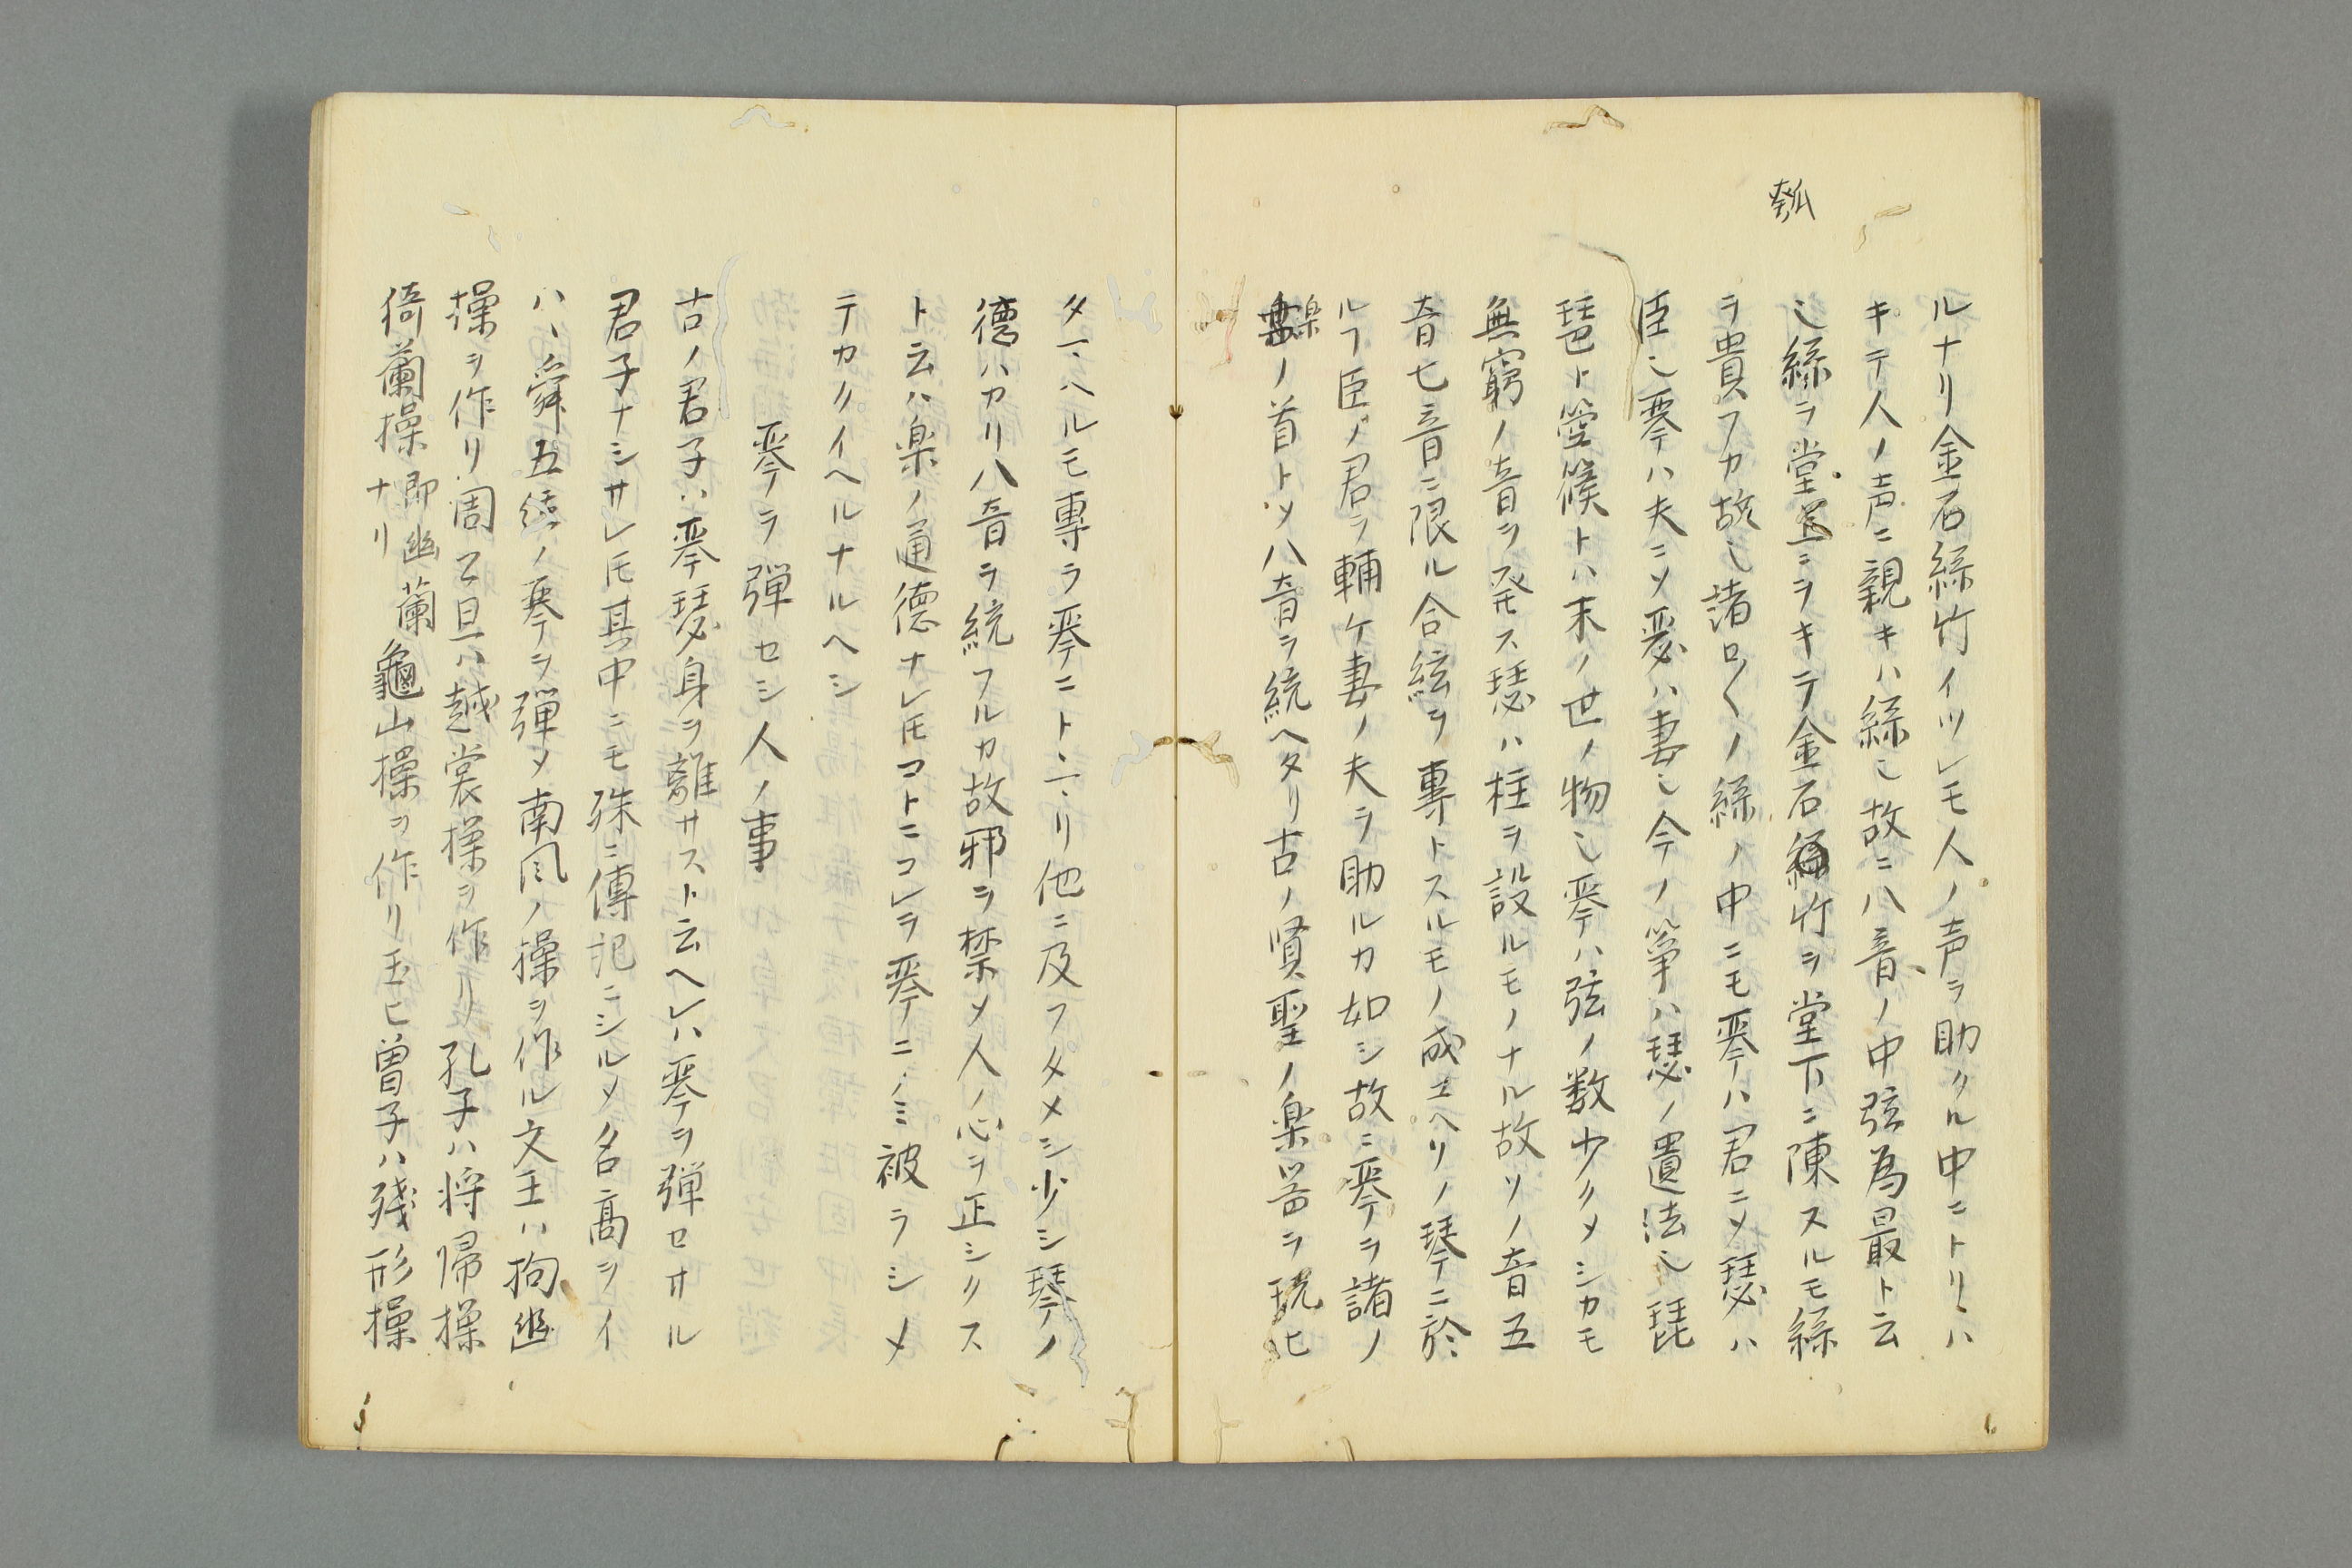 瓠
ルナリ金石絲竹イツレモ人ノ声ヲ助クル中ニトリハ
キテ人ノ声ニ親キハ絲也故ニ八音ノ中弦為最ト云
也絲ヲ堂上ニヲキテ金石竹ヲ堂下ニ陳スルモ絲
ヲ貴フカ故也諸ロ〱ノ絲ノ中ニモ琴ハ君ニメ瑟ハ
臣也琴ハ夫ニメ瑟ハ妻也今ノ箏ハ瑟ノ遺法也琵
琶ト箜篌トハ末ノ世ノ物也琴ハ弦ノ数少クメシカモ
無窮ノ音ヲ発ス瑟ハ柱ヲ設ルモノナル故ソノ音五
音七音ニ限ル合絃ヲ専トスルモノ成ヘリノ琴ニ於
ルフ臣ノ君ヲ輔ケ妻ノ夫ヲ助ルカ如シ故ニ琴ヲ諸ノ
楽ノ首トソ八音ヲ統ヘタリ古ノ賢聖ノ楽器ヲ玩ヒ
タマヘルモ專ラ琴ニトヽマリ他ニ及フタメシ少シ琴ノ
德ハカリ八音ヲ統フルカ故邪ヲ禁メ人ノ心ヲ正シクス
ト云ハ楽ノ通德ナレ𪜈コトニコレヲ琴ニノミ被ラシメ
テカクイヘルナルヘシ
琴ヲ彈セシ人ノ事
古ノ君子ハ琴瑟身ヲ離サスト云ヘレハ琴ヲ彈セサル
君子ナシサレ𪜈其中ニモ殊ニ傳記ニシルメ名高ヲイ
ハヽ舜五絃ノ琴ヲ彈メ南風ノ操ヲ作ル文王ハ拘幽
操ヲ作リ周公旦ハ越裳操ヲ作リ孔子ハ将帰操
倚蘭操即幽蘭ナリ龜山操ヲ作リ玉ヒ曽子ハ殘形操